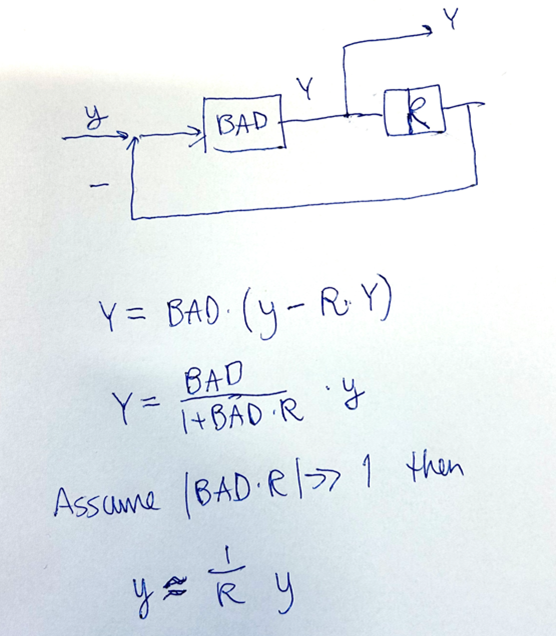 Y
y
BAD
Y
R
−
Y = BAD · (y − R · Y)
Y = BAD / 1 + BAD · R · y
Assume |BAD · R| >> 1 then
y ≈ 1 / R y